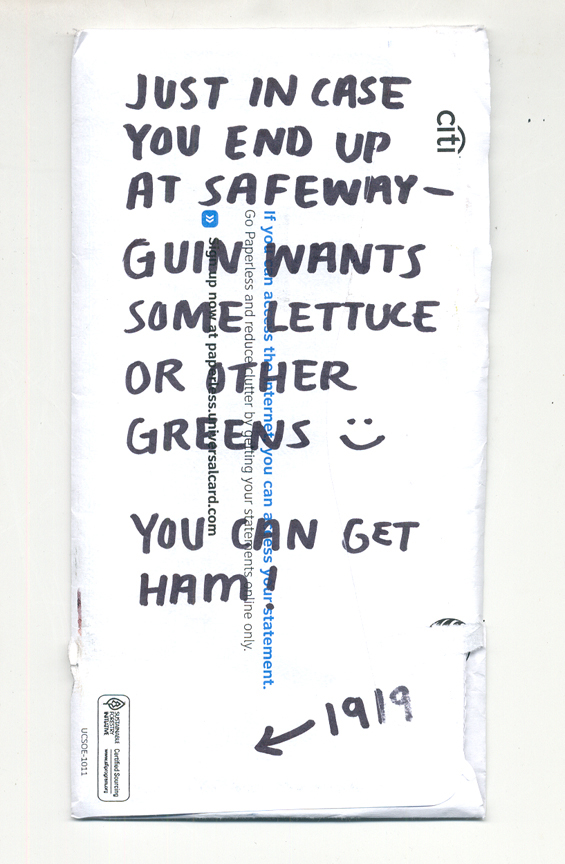 JUST IN CASE
YOU END UP
AT SAFEWAY–
GUIN WANTS
SOME LETTUCE
OR OTHER
GREENS
YOU CAN GET
HAM!
1919
citi
If you can access the Internet, you can access your statement.
Go Paperless and reduce clutter by getting your statements online only.
Sign up now at paperless.universalcard.com
SUSTAINABLE
FORESTRY
INITIATIVE
Certified Sourcing
www.sfiprogram.org
UCSOE-1011